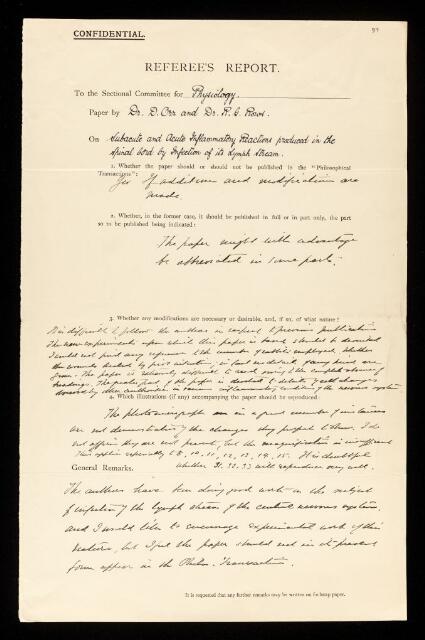 CONFIDENTIAL.
REFEREE'S REPORT.
To the Sectional Committee for Physiology.
Paper by Dr. D. Orr and Dr. R. G. Rows.
On Subacute and Acute Inflammatory Reactions produced in the
Spinal Cord by Infection of its Lymph Stream.
1. Whether the paper should or should not be published in the "Philosophical
Transactions":
Yes If additions and modifications are
made
2. Whether, in the former case, it should be published in full or in part only, the part
so to be published being indicated:
The paper might with advantage
be abbreviated in some parts.
3. Whether any modifications are necessary or desirable, and, if so, of what nature?
It is difficult to follow the authors in respect to previous publications.
The new experiments upon which this paper is based should be
I could not find any reference to the number of rabbits employed, whether
the wounds healed by first intention; in fact no details of any kind are
given. The paper is extremely difficult to read owing to the complete absence of
headings. The greater part of the paper is devoted to details of cell changes
by other authorities in various inflammatory conditions of the nervous system
4. Which illustrations (if any) accompanying the paper should be reproduced:
The photomicrographs in a great number of instances
are not demonstrative of the changes they purport to show. I do
not they are not present, but the magnification is insufficient
This applies especially to 8, 10, 11, 12, 13, 14, 15. It is doubtful
General Remarks. whether 31, 32, 33 will reproduce very well.
The authors have been doing good work on the subject
of infection of the lymph stream of the central nervous system,
and I would like to encourage experimental work of this
nature, but I feel the paper should not in its present
form appear in the Philos. Transactions.
It is requested that any further remarks may be written on foolscap paper.